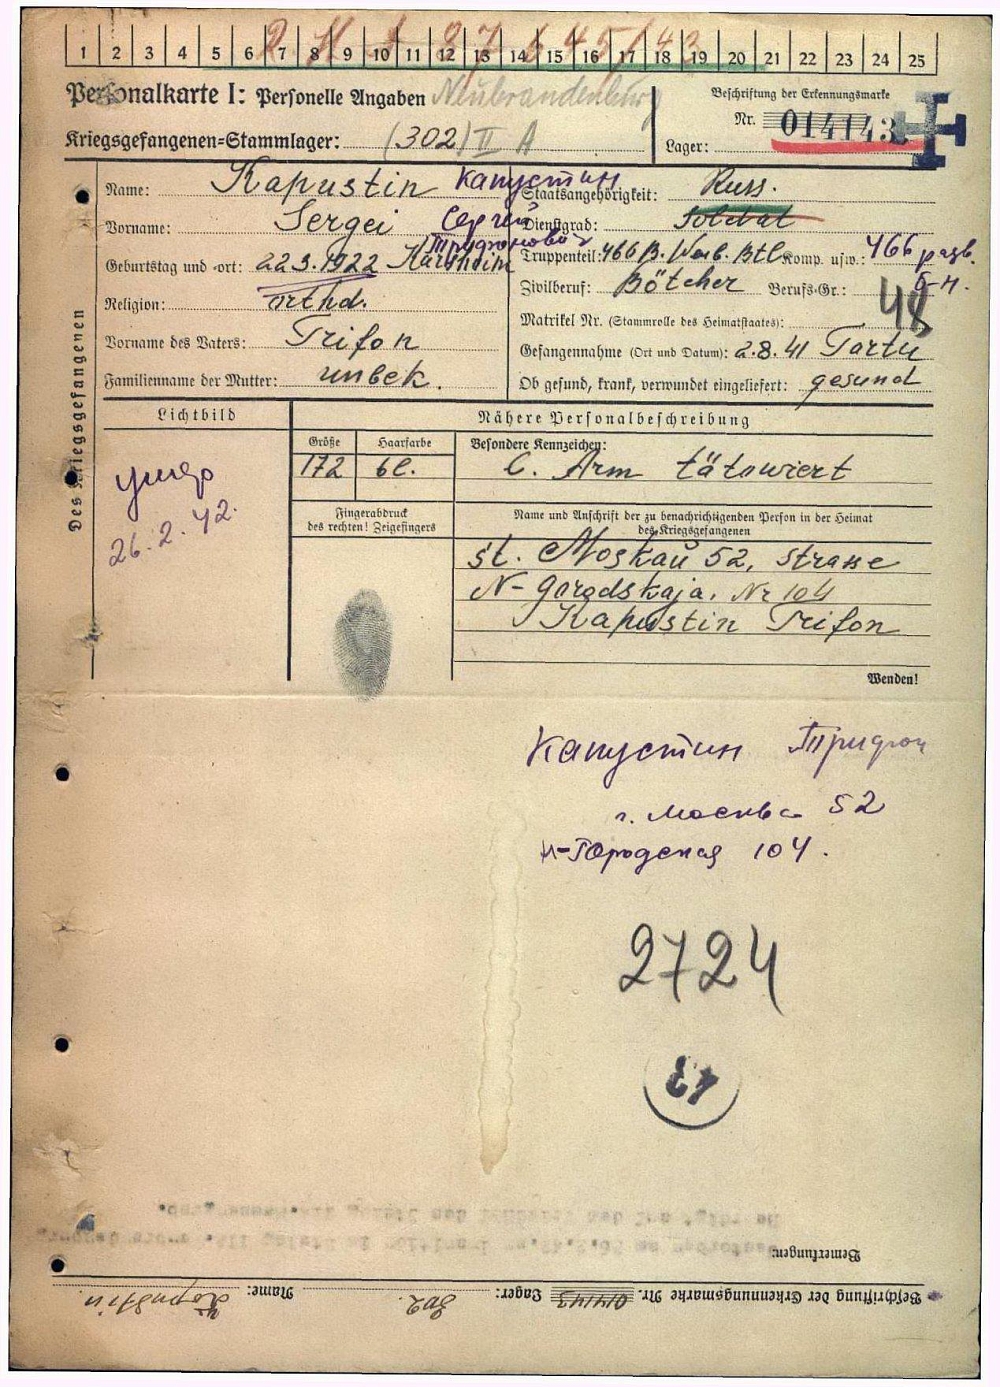 1 2 3 4 5 6 7 8 9 10 11 12 13 14 15 16 17 18 19 20 21 22 23 24 25
Personalkarte I: Personelle Angaben Neubrandenburg
Beschriftung der Erkennungsmarke
Nr. 014143
Kriegsgefangenen-Stammlager: (302) II A
Lager:
Des Kriegsgefangenen
Name: Kapustin Капустин
Staatsangehörigkeit: Russ.
Vorname: Sergei Сергей Трифонович
Dienstgrad: Soldat
Geburtstag und -ort: 22.3.1922
Truppenteil: 466 B. Btl. Komp. usw.: 466 разв. б-н.
Religion: orthd.
Zivilberuf: Bötcher Berufs-Gr.: 48
Matrikel Nr. (Stammrolle des Heimatstaates):
Vorname des Vaters: Trifon
Gefangennahme (Ort und Datum): 2.8.41 Tartu
Familienname der Mutter: unbek.
Ob gesund, krank, verwundet eingeliefert: gesund
Lichtbild
Nähere Personalbeschreibung
Größe
172
Haarfarbe
bl.
Besondere Kennzeichen:
Arm tätowiert
26.2.42.
Fingerabdruck
des rechten! Zeigefingers
Name und Anschrift der zu benachrichtigenden Person in der Heimat
des Kriegsgefangenen
st. Moskau 52, strasse
N- Garodskaja. Nr 104
Kapustin Trifon
Wenden!
Капустин Трифон
г. Москва 52
Н-Городская 104.
2724
43
Bemerkungen:
Beschriftung der Erkennungsmarke Nr. 014143 Lager: 302. Name: Kapustin